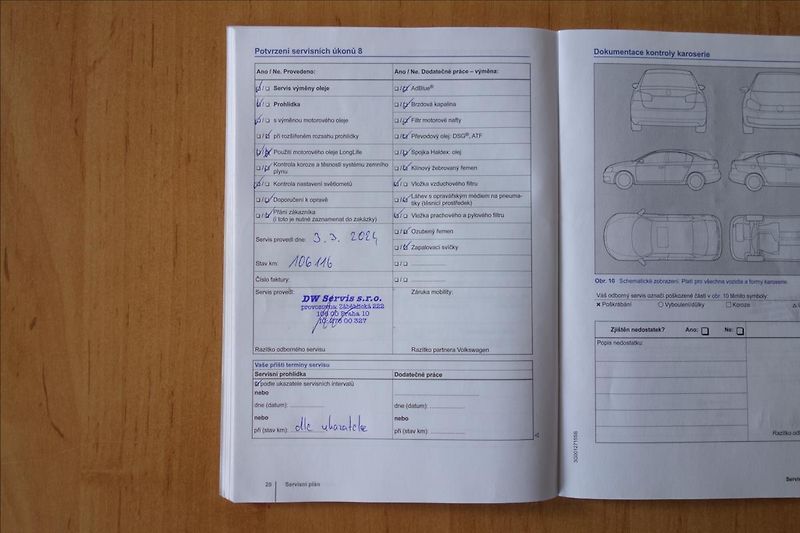 Potvrzení servisních úkonů 8
Ano / Ne. Provedeno:
Servis výměny oleje
Prohlídka
s výměnou motorového oleje
při rozšířeném rozsahu prohlídky
Použití motorového oleje LongLife
Kontrola koroze a těsnosti systému zemního
plynu
Kontrola nastavení světlometů
Doporučení k opravě
Přání zákazníka
(i toto je nutné zaznamenat do zakázky)
Servis provedl dne: 3. 3. 2024
Stav km: 106116
Číslo faktury:
Servis provedl:
DW Servis s.r.o.
provozovna Záběhlická 222
106 00 Praha 10
Razítko odborného servisu
Ano / Ne. Dodatečné práce – výměna:
AdBlue®
Brzdová kapalina
Filtr motorové nafty
Převodový olej: DSG®, ATF
Spojka Haldex: olej
Klínový žebrovaný řemen
Vložka vzduchového filtru
Láhev s opravářským médiem na pneuma-
tiky (těsnicí prostředek)
Vložka prachového a pylového filtru
Ozubený řemen
Zapalovací svíčky
Záruka mobility:
Razítko partnera Volkswagen
Vaše příští termíny servisu
Servisní prohlídka
podle ukazatele servisních intervalů
nebo
dne (datum):
nebo
při (stav km): dle ukazatele
Dodatečné práce
dne (datum):
nebo
při (stav km):
28 Servisní plán
Dokumentace kontroly karoserie
Obr. 10 Schematické zobrazení: Platí pro všechna vozidla a formy karoserie.
Váš odborný servis označí poškozené části v obr. 10 těmito symboly:
Poškrábání Vyboulení/důlky Koroze
Zjištěn nedostatek? Ano: Ne:
Popis nedostatku:
Razítko